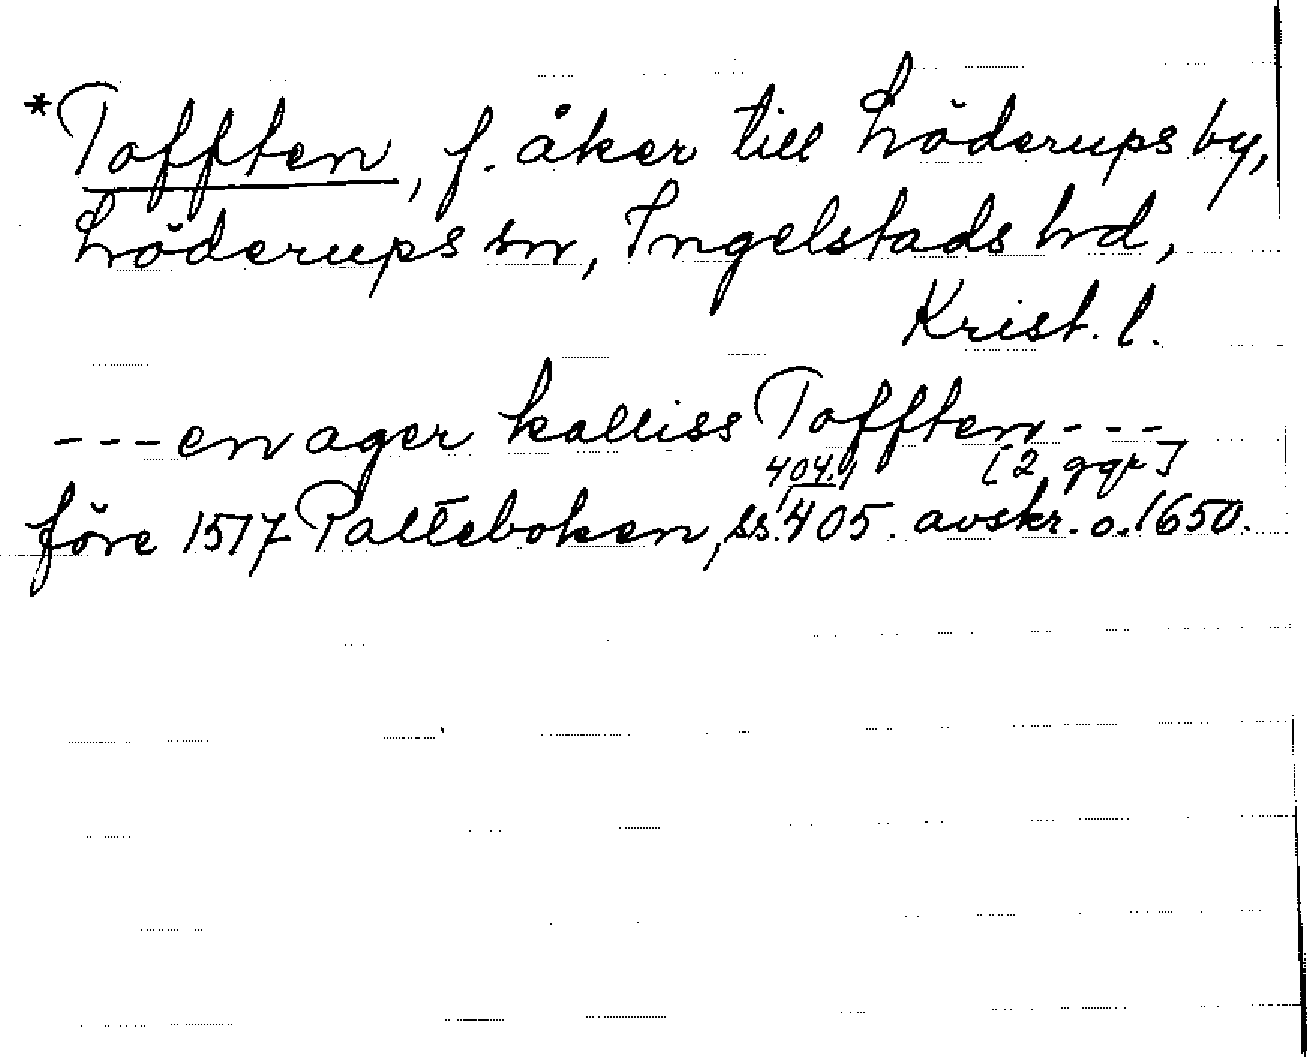 *Tofften, f. åker till Löderups by,
Löderups sn, Ingelstads hd,
Krist. l.
---en ager kalliss Tofften---
404, [2 ggr]
före 1517 Palteboken, ss. 405. avskr. o. 1650.